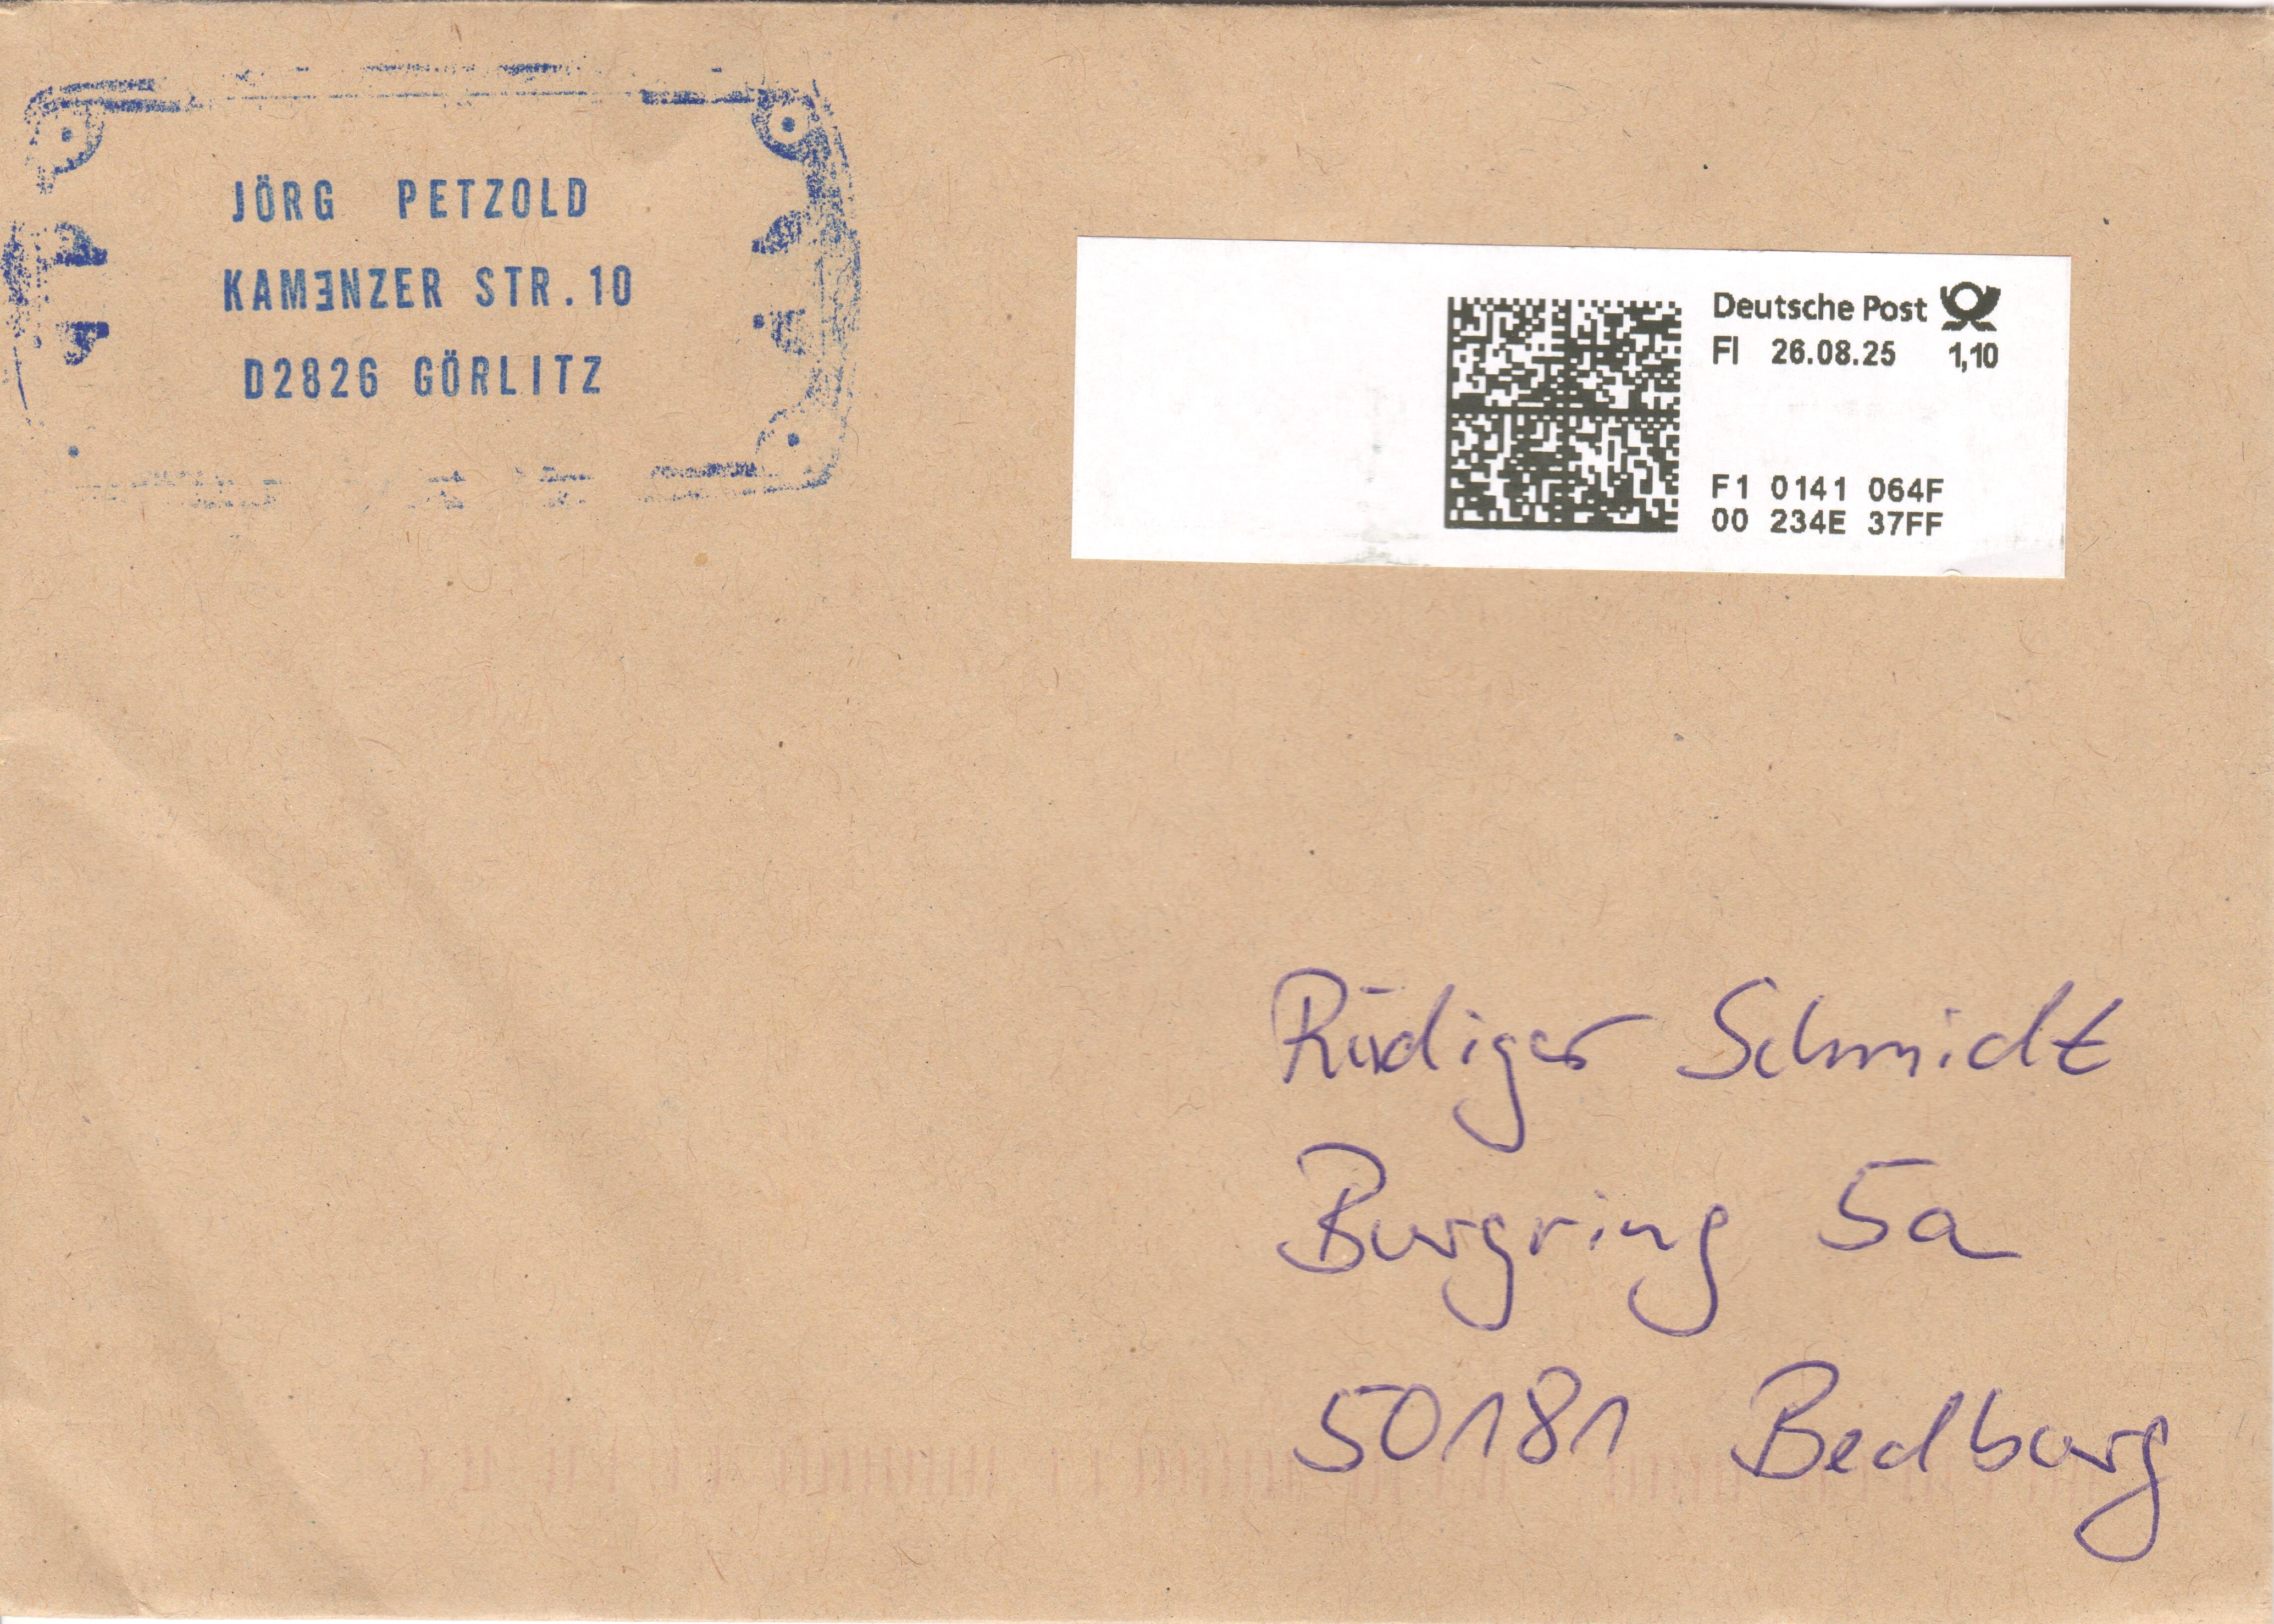 JÖRG PETZOLD
KAMƎNZER STR.10
D2826 GÖRLITZ
Deutsche Post
FI 26.08.25 1,10
F1 0141 064F
00 234E 37FF
Rüdiger Schmidt
Burgring 5a
50181 Bedburg